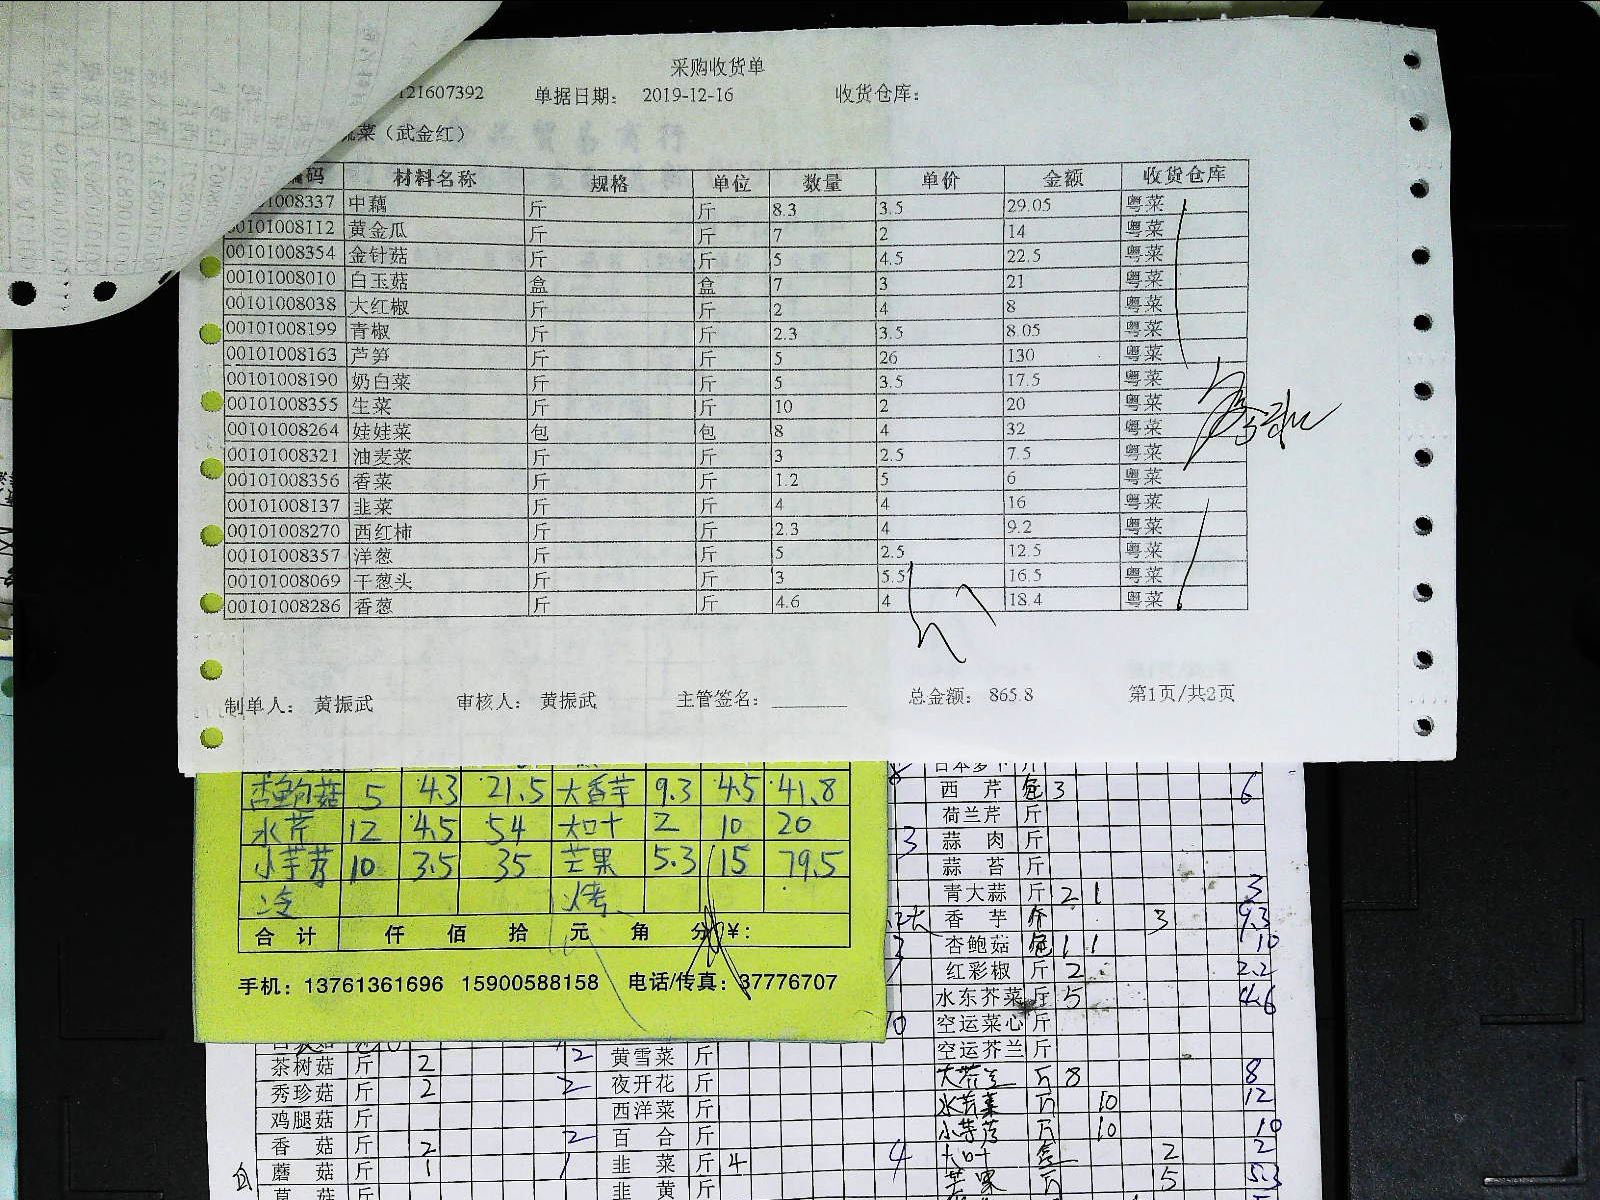 采购收货单
121607392 单据日期： 2019-12-16 收货仓库：
菜（武金红）
码 材料名称 规格 单位 数量 单价 金额 收货仓库
01008337 中藕 斤 斤 8.3 3.5 29.05 粤菜
00101008112 黄金瓜 斤 斤 7 2 14 粤菜
00101008354 金针菇 斤 斤 5 4.5 22.5 粤菜
00101008010 白玉菇 盒 盒 7 3 21 粤菜
00101008038 大红椒 斤 斤 2 4 8 粤菜
00101008199 青椒 斤 斤 2.3 3.5 8.05 粤菜
00101008163 芦笋 斤 斤 5 26 130 粤菜
00101008190 奶白菜 斤 斤 5 3.5 17.5 粤菜
00101008355 生菜 斤 斤 10 2 20 粤菜
00101008264 娃娃菜 包 包 8 4 32 粤菜
00101008321 油麦菜 斤 斤 3 2.5 7.5 粤菜
00101008356 香菜 斤 斤 1.2 5 6 粤菜
00101008137 韭菜 斤 斤 4 4 16 粤菜
00101008270 西红柿 斤 斤 2.3 4 9.2 粤菜
00101008357 洋葱 斤 斤 5 2.5 12.5 粤菜
00101008069 干葱头 斤 斤 3 5.5 16.5 粤菜
00101008286 香葱 斤 斤 4.6 4 18.4 粤菜
制单人： 黄振武 审核人： 黄振武 主管签名： 总金额： 865.8 第1页/共2页
杏鲍菇 5 4.3 21.5 大香芋 9.3 4.5 41.8
水芹 12 4.5 54 大口叶 2 10 20
小芋艿 10 3.5 35 芒果 5.3 15 79.5
冷 烤
合计 仟 佰 拾 元 角 分 ¥：
手机：13761361696 15900588158 电话/传真：37776707
西芹 包 3 6
荷兰芹 斤
3 蒜肉 斤
蒜苔 斤
青大蒜 斤 2 1 3
香芋 斤 3 9.3
杏鲍菇 包 1 1 10
红彩椒 斤 2 2.2
水东芥菜 斤 5 4.6
10 空运菜心 斤
空运芥兰 斤
茶树菇 斤 2 2 黄雪菜 斤 大芥兰 斤 8 8
秀珍菇 斤 2 2 夜开花 斤 水芹菜 斤 10 12
鸡腿菇 斤 西洋菜 斤 小芋艿 斤 10 10
香菇 斤 2 2 百合 斤 大口叶 盒 2 2
蘑菇 斤 1 1 韭菜 斤 4 4 芒果 斤 5 5.3
草菇 斤 韭黄 斤